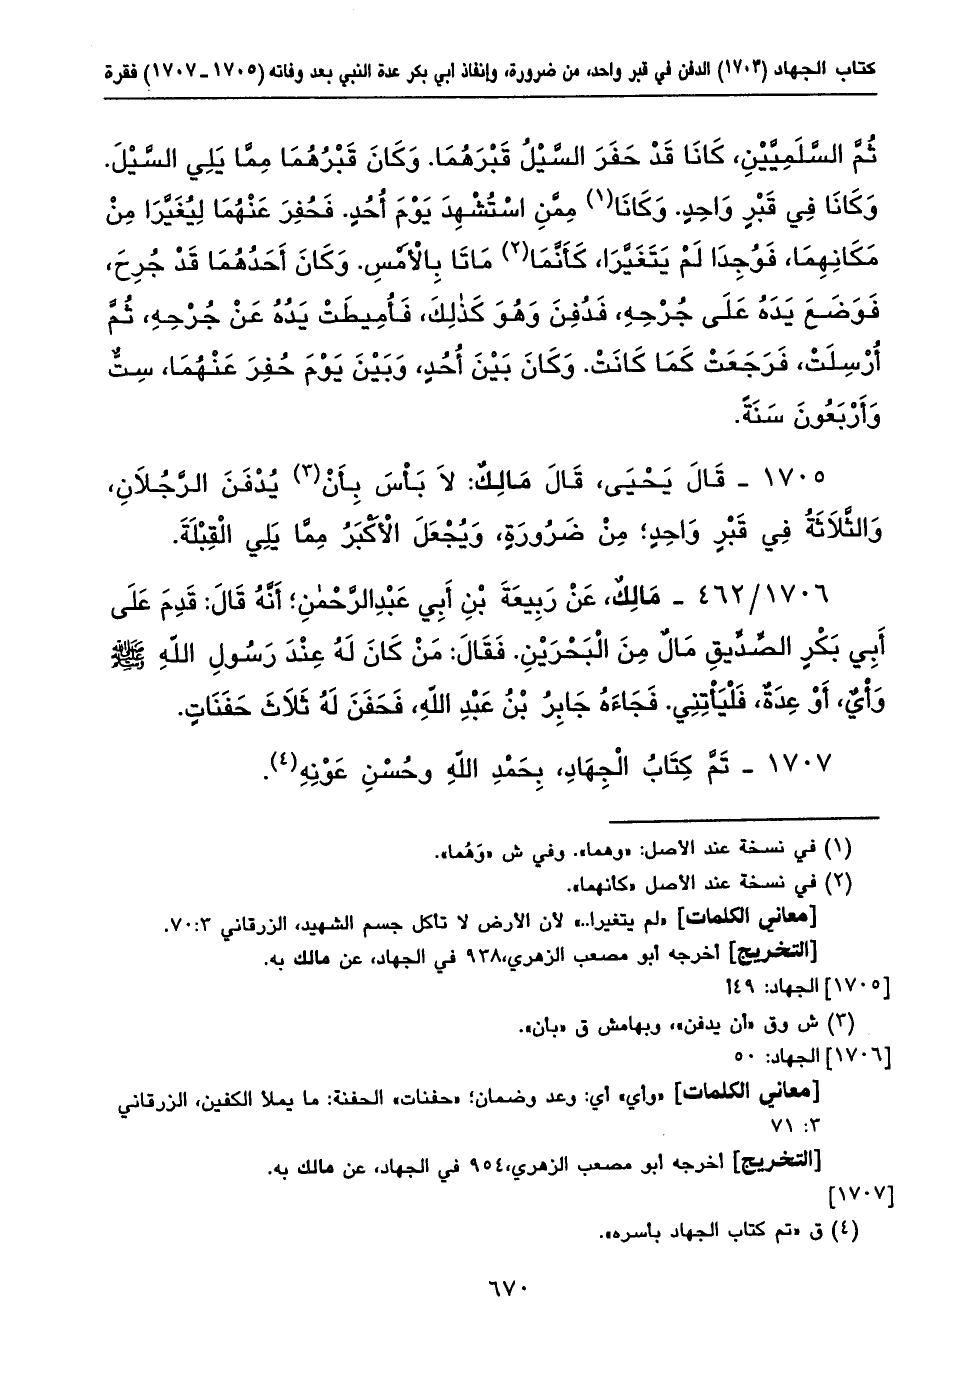 كتاب الجهاد (١٧٠٣) الدفن في قبر واحد، من ضرورة، وإنفاذ ابي بكر عدة النبي بعد وفاته (١٧٠٥ـ١٧٠٧) فقرة
ثُمَّ السَّلَمِيَّيْنِ، كَانَا قَدْ حَفَرَ السَّيْلُ قَبْرَهُمَا. وَكَانَ قَبْرُهُمَا مِمَّا يَلِي السَّيْلَ.
وَكَانَا فِي قَبْرٍ وَاحِدٍ. وَكَانَا(١) مِمَّنِ اسْتُشْهِدَ يَوْمَ أُحُدٍ. فَحُفِرَ عَنْهُمَا لِيُغَيَّرَا مِنْ
مَكَانِهِمَا، فَوُجِدَا لَمْ يَتَغَيَّرَا، كَأَنَّمَا(٢) مَاتَا بِالْأَمْسِ. وَكَانَ أَحَدُهُمَا قَدْ جُرِحَ،
فَوَضَعَ يَدَهُ عَلَى جُرْحِهِ، فَدُفِنَ وَهُوَ كَذٰلِكَ، فَأُمِيطَتْ يَدُهُ عَنْ جُرْحِهِ، ثُمَّ
أُرْسِلَتْ، فَرَجَعَتْ كَمَا كَانَتْ. وَكَانَ بَيْنَ أُحُدٍ، وَبَيْنَ يَوْمَ حُفِرَ عَنْهُمَا، سِتٌّ
وَأَرْبَعُونَ سَنَةً.
١٧٠٥ ـ قَالَ يَحْيَى، قَالَ مَالِكٌ: لاَ بَأْسَ بِأَنْ(٣) يُدْفَنَ الرَّجُلاَنِ،
وَالثَّلاَثَةُ فِي قَبْرٍ وَاحِدٍ؛ مِنْ ضَرُورَةٍ، وَيُجْعَلَ الْأَكْبَرُ مِمَّا يَلِي الْقِبْلَةَ.
٤٦٢/١٧٠٦ ـ مَالِكٌ، عَنْ رَبِيعَةَ بْنِ أَبِي عَبْدِالرَّحْمٰنِ؛ أَنَّهُ قَالَ: قَدِمَ عَلَى
أَبِي بَكْرٍ الصِّدِّيقِ مَالٌ مِنَ الْبَحْرَيْنِ. فَقَالَ: مَنْ كَانَ لَهُ عِنْدَ رَسُولِ اللهِ ﷺ
وَأْيٌ، أَوْ عِدَةٌ، فَلْيَأْتِنِي. فَجَاءَهُ جَابِرُ بْنُ عَبْدِ اللهِ، فَحَفَنَ لَهُ ثَلاَثَ حَفَنَاتٍ.
١٧٠٧ ـ تَمَّ كِتَابُ الْجِهَادِ، بِحَمْدِ اللهِ وحُسْنِ عَوْنِهِ(٤).
(١) في نسخة عند الأصل: «وهما». وفي ش «وَهُما».
(٢) في نسخة عند الأصل «كأنهما».
[معاني الكلمات] «لم يتغيرا..» لأن الأرض لا تأكل جسم الشهيد، الزرقاني ٧٠:٣.
[التخريج] أخرجه أبو مصعب الزهري،٩٣٨ في الجهاد، عن مالك به.
[١٧٠٥] الجهاد: ٤٩أ
(٣) ش وق «أن يدفن»، وبهامش ق «بأن».
[١٧٠٦] الجهاد: ٥٠
[معاني الكلمات] «وأي» أي: وعد وضمان؛ «حفنات» الحفنة: ما يملأ الكفين، الزرقاني
٣: ٧١
[التخريج] أخرجه أبو مصعب الزهري،٩٥٤ في الجهاد، عن مالك به.
[١٧٠٧]
(٤) ق «تم كتاب الجهاد بأسره».
٦٧٠